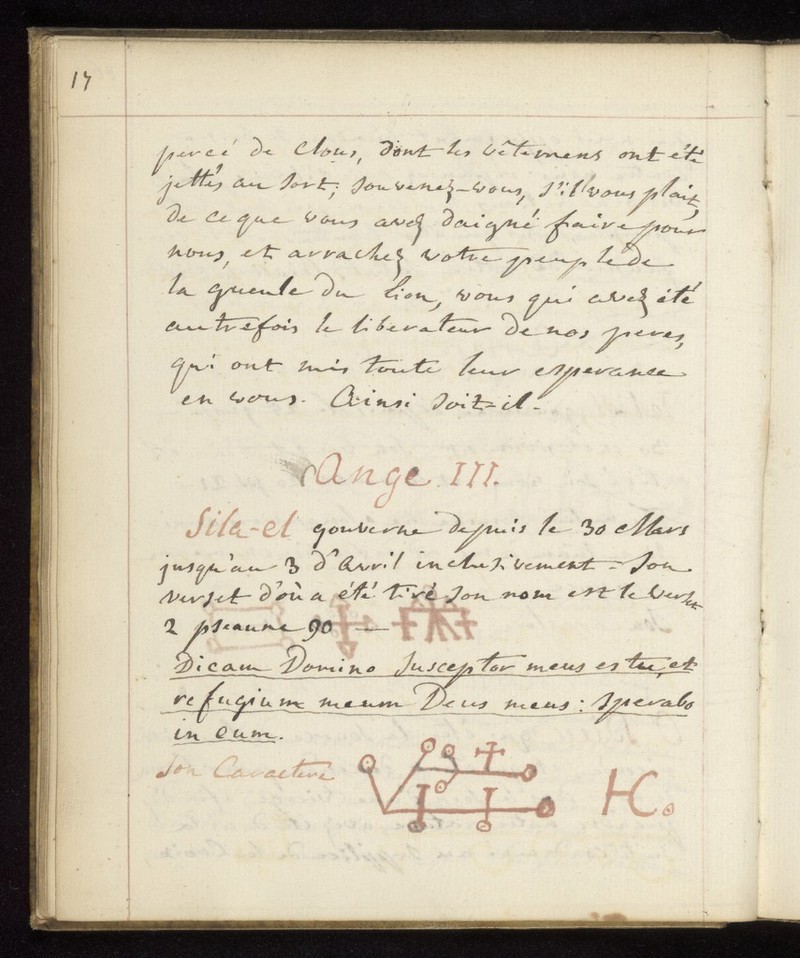 17
percé de clous, dont les vêtemens ont été
jettés au sort; souvenez-vous, s'il vous plait,
de ce que vous avez daigné faire pour
nous, et arrachez votre peuple de
la gueule du lion, vous qui avez été
autrefois le liberateur de nos peres,
qui ont mis toute leur esperance
en vous. Ainsi soit=il.
Ange III.
Sila-el gouverne depuis le 30 Mars
jusqu'au 3 d'Avril inclusivement - Son
verset d'où a été tiré son nom est le verset
2 pseaune 90 —
Dicam Domino susceptor meus es tu, et
refugium meum Deus meus: sperabo
in eum.
Son Caractere